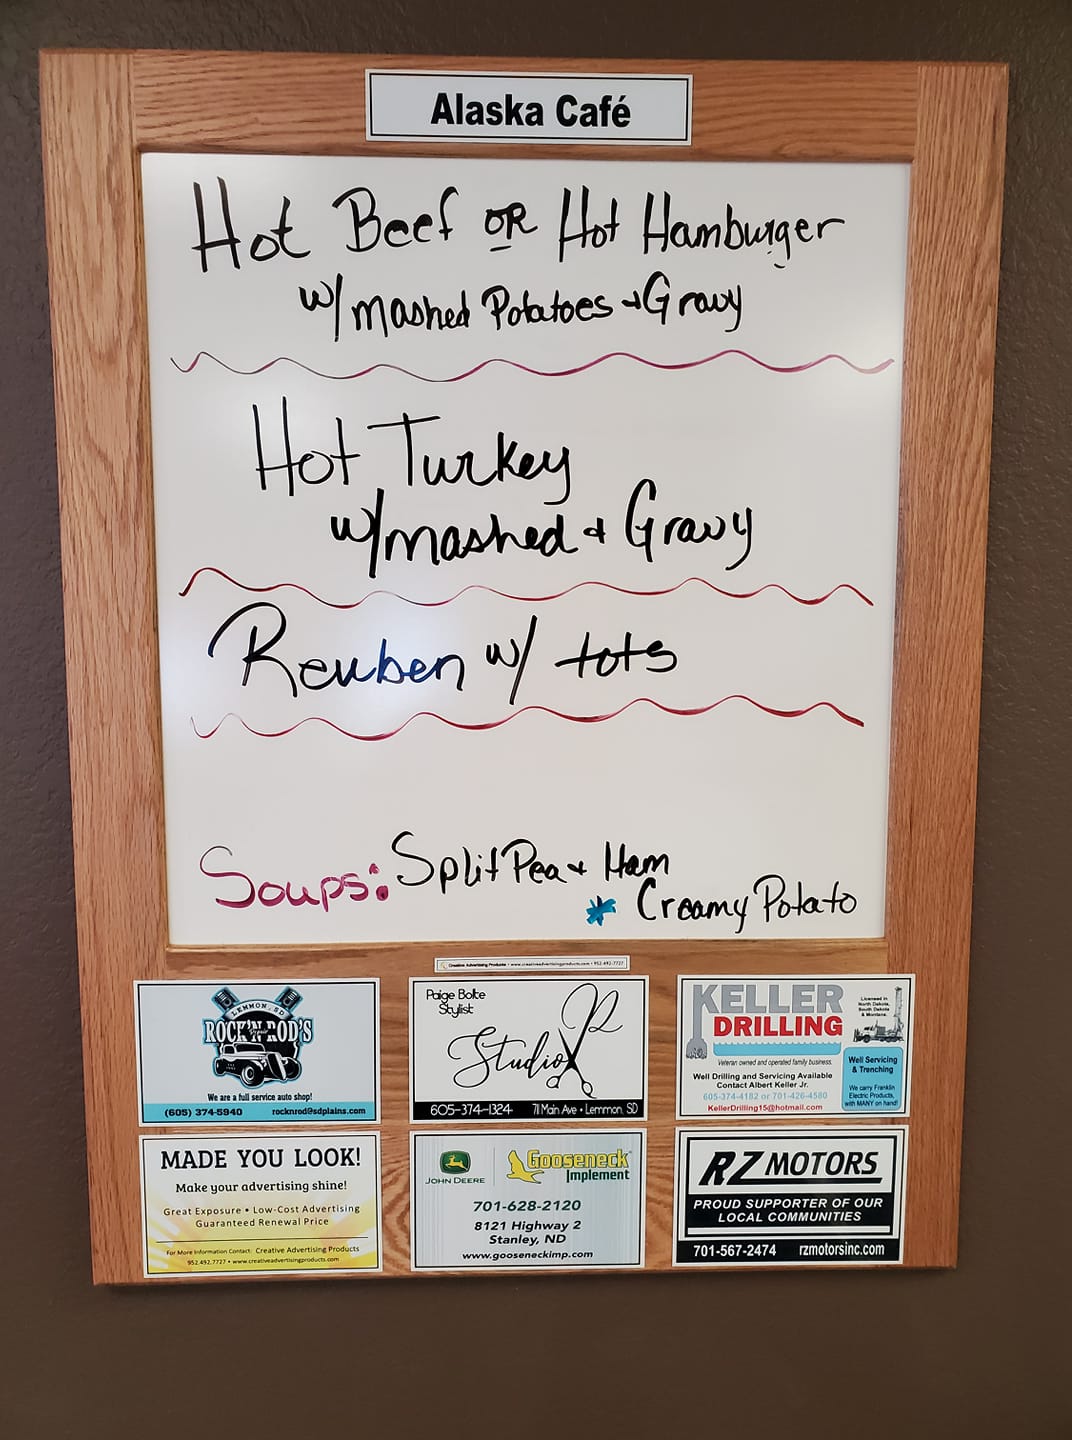 Alaska Café
Hot Beef OR Hot Hamburger
w/ mashed Potatoes + Gravy
Hot Turkey
w/mashed + Gravy
Reuben w/ tots
Soups: Split Pea + Ham
* Creamy Potato
Creative Advertising Products • www.creativeadvertisingproducts.com • 952-492-7727
LEMMON, SD
ROCK'N ROD'S
Repair
We are a full service auto shop!
(605) 374-5940 rocknrod@sdplains.com
Paige Bolte
Stylist
Studio R
605-374-1324 711 Main Ave • Lemmon, SD
KELLER
DRILLING
Licensed in
North Dakota,
South Dakota
& Montana.
Veteran owned and operated family business.
Well Drilling and Servicing Available
Contact Albert Keller Jr.
605-374-4182 or 701-426-4580
KellerDrilling15@hotmail.com
Well Servicing
& Trenching
We carry Franklin
Electric Products,
with MANY on hand!
MADE YOU LOOK!
Make your advertising shine!
Great Exposure • Low-Cost Advertising
Guaranteed Renewal Price
For More Information Contact: Creative Advertising Products
952.492.7727 • www.creativeadvertisingproducts.com
JOHN DEERE
Gooseneck
Implement
701-628-2120
8121 Highway 2
Stanley, ND
www.gooseneckimp.com
RZ MOTORS
PROUD SUPPORTER OF OUR
LOCAL COMMUNITIES
701-567-2474 rzmotorsinc.com